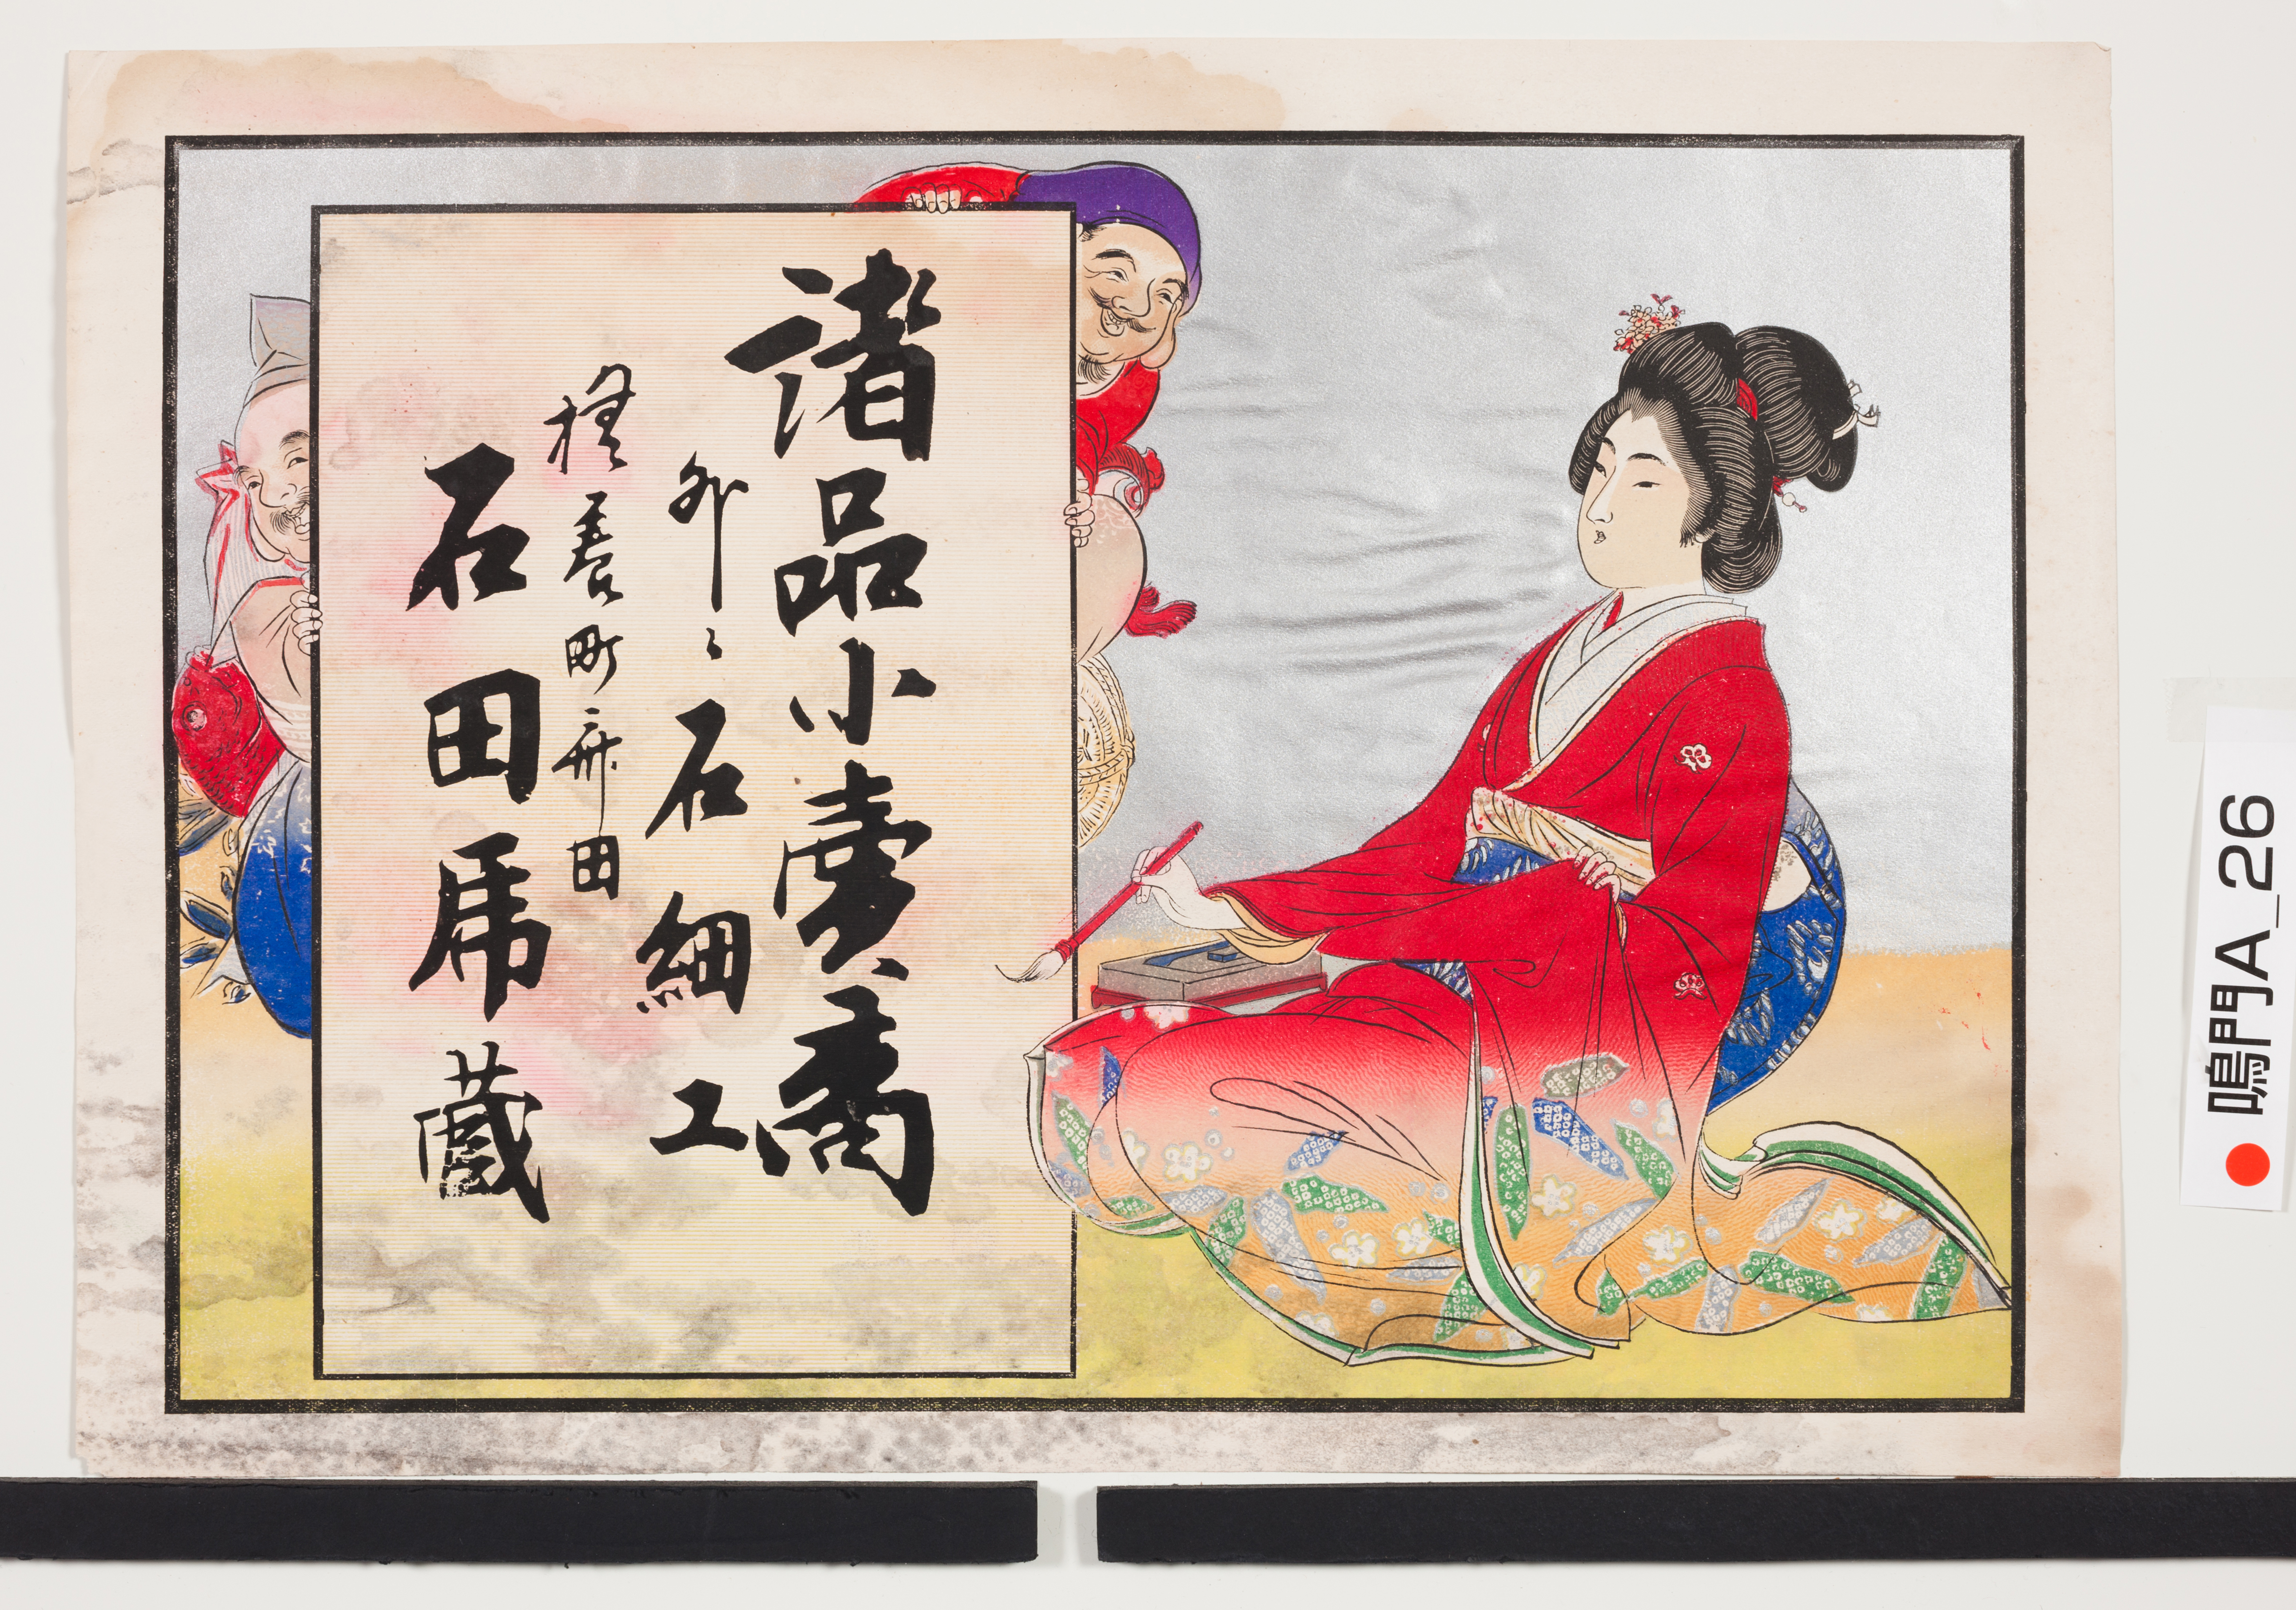 諸品小賣商
外ニ石細工
撫養町弁田
石田乕蔵
鳴門A_26